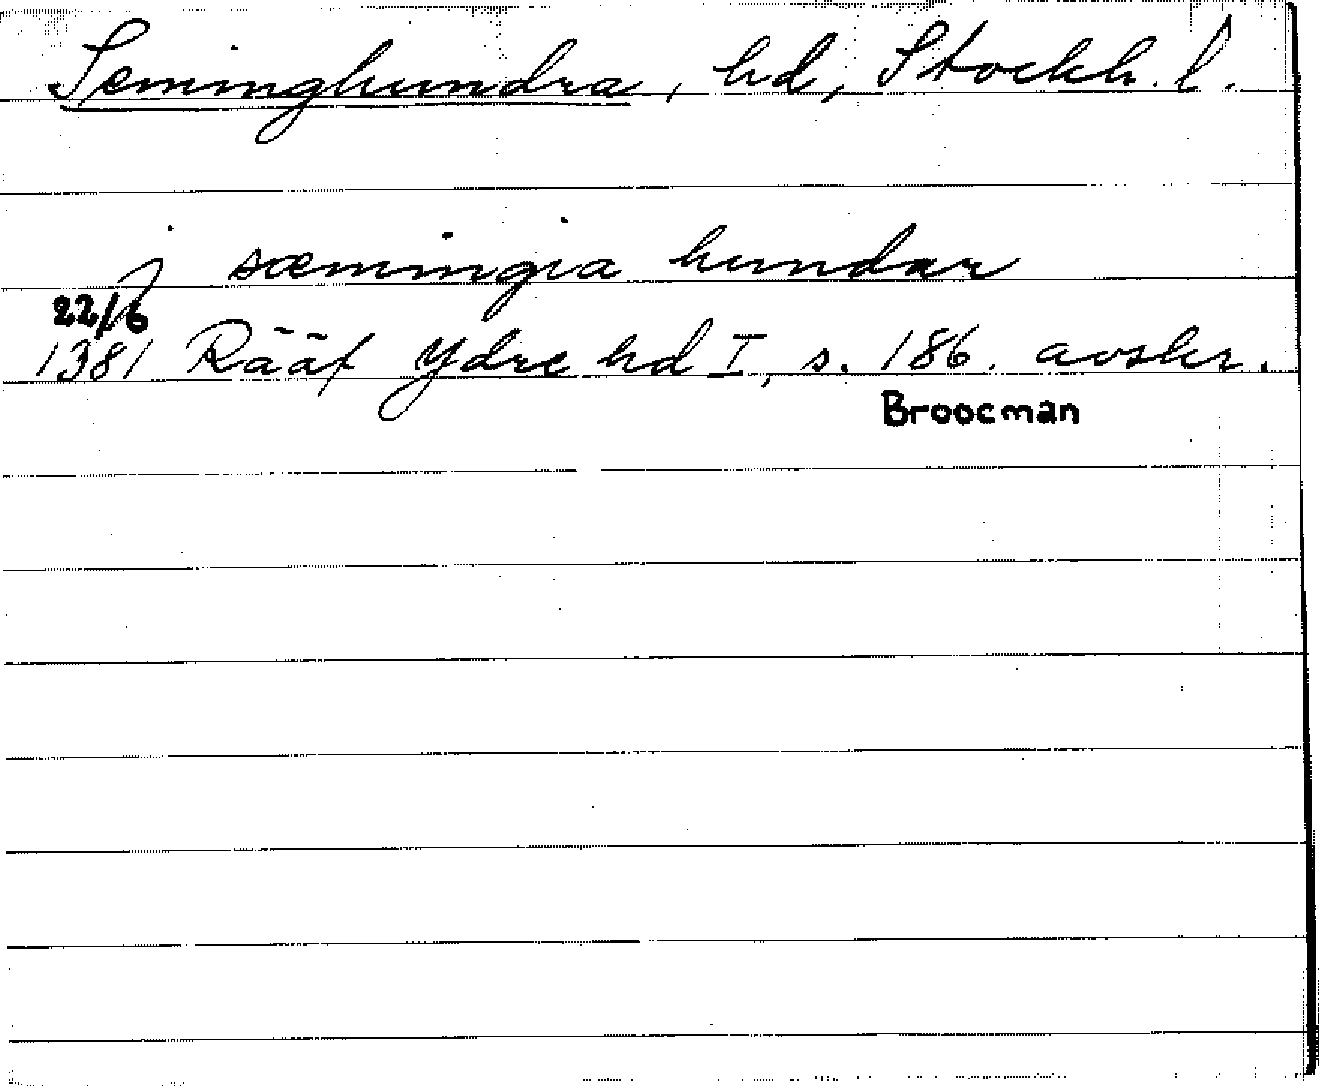 Seminghundra, hd, Stockh. l.
j sæmingia hundar
22/6
1381 Rääf Ydre hd I, s. 186. avskr.
Broocman